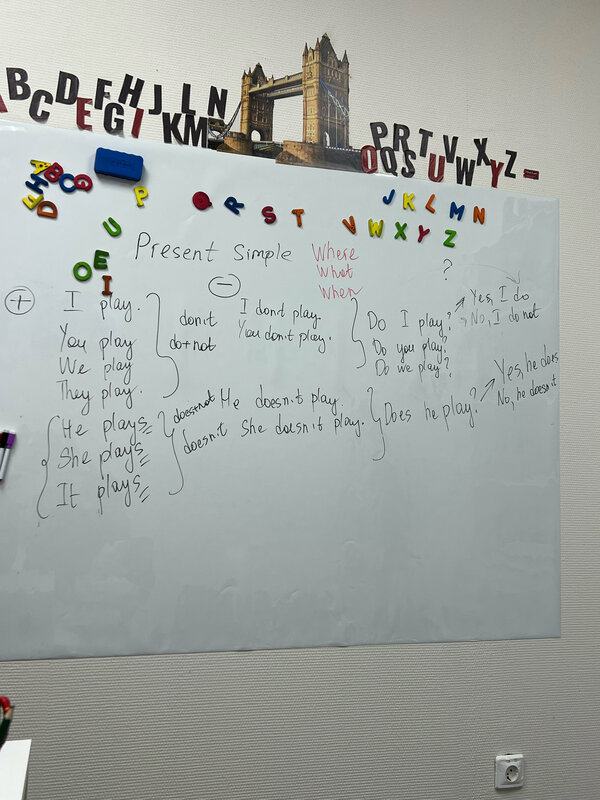 A B C D E F G H I J K L M N
O P Q R S T U V W X Y Z
A B C G
E H D
P Q R S T
J K L M N
V W X Y Z
U
O E I
Present Simple
Where
What
When
+
I play.
You play
We play
They play.
He plays
She plays
It plays
−
don't
do+not
I don't play.
You don't play.
does+not
doesn't
He doesn't play.
She doesn't play.
?
Do I play?
Do you play?
Do we play?
Yes, I do
No, I do not
Does he play?
Yes, he does
No, he doesn't